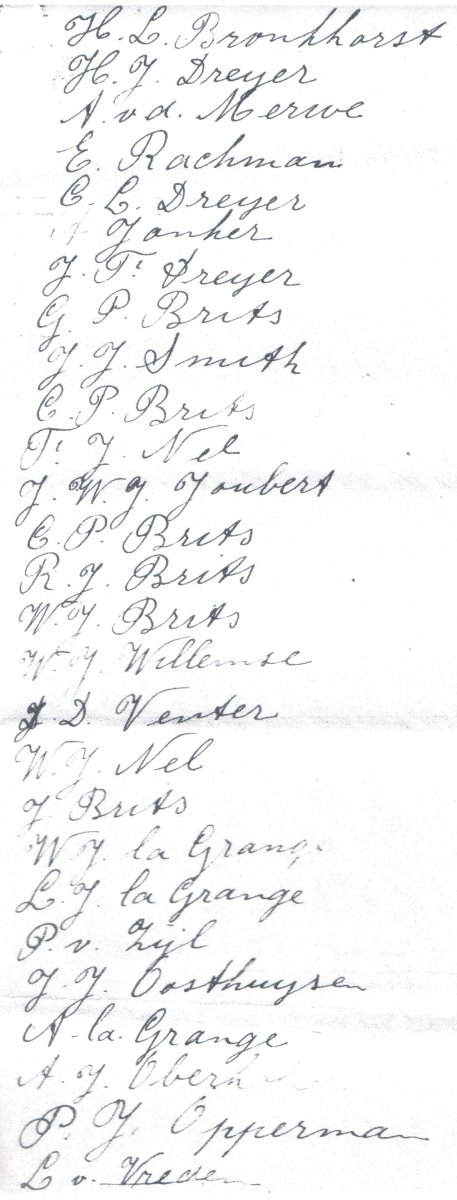 H. L. Bronkhorst
H. J. Dreyer
A. v d. Merwe
E. Rachman
C. L. Dreyer
Jonker
J. F. Dreyer
G. P. Brits
J. J. Smith
C. P. Brits
F. J. Nel
J. W. J. Joubert
C. P. Brits
R. J. Brits
W. J. Brits
W. J. Willemse
J. D. Venter
W. J. Nel
J Brits
W J. la Grange
L. J la Grange
P. v. Zijl
J. J. Oosthuysen
A. la. Grange
A. J.
P. J. Opperman
L v. Vreden